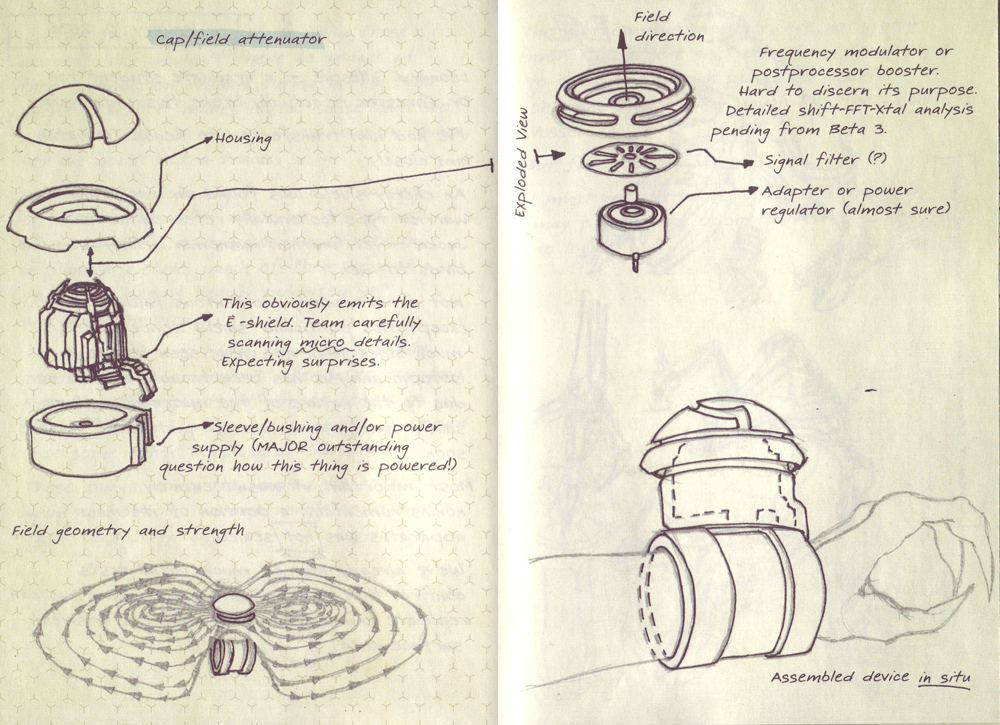 Cap/field attenuator
Housing
This obviously emits the
E-shield. Team carefully
scanning micro details.
Expecting surprises.
Sleeve/bushing and/or power
supply (MAJOR outstanding
question how this thing is powered!)
Field geometry and strength
Field
direction
Frequency modulator or
postprocessor booster.
Hard to discern its purpose.
Detailed shift-FFT-Xtal analysis
pending from Beta 3.
Exploded View
Signal filter (?)
Adapter or power
regulator (almost sure)
Assembled device in situ